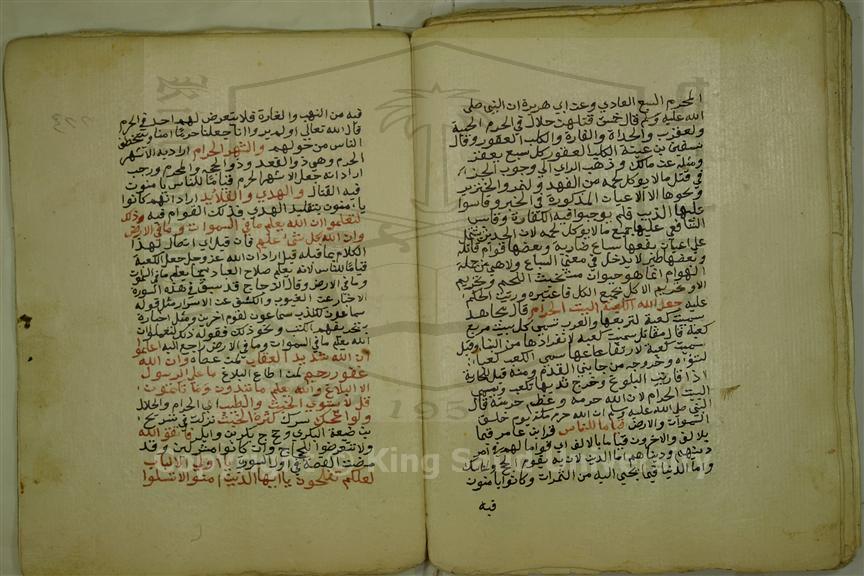 المحرم السبع العادي وعن ابي هريرة ان النبي صلى
الله عليه وسلم قال خمس قتلهن حلال في الحرم الحية
والعقرب والحداة والفارة والكلب العقور وقال
سفين بن عيينة الكلب العقور كل سبع يعقر
ومثله عن مالك وذهب الراي الى وجوب الجزا
في قتل ما لا يوكل لحمه من الفهد والنمر والخنزير
ونحوها الا الاعيان المذكورة في الخبر وقاسوا
عليها الذيب فلم يوجبوا فيه الكفارة وقاس
الشافعي عليها جميع ما لا يوكل لحمه لان الحديث يشتمل
على اعيان بعضها سباع ضارية وبعضها هوام قاتلة
وبعضها طير لا يدخل في معنى السباع ولا هي من جملة
الهوام انما هو حيوان مستخبث اللحم وتحريم
الاكل يجمع الكل فاعتبره ورتب الحكم
عليه جعل الله الكعبة البيت الحرام قال مجاهد
سميت كعبة لتربيعها والعرب تسمي كل بيت مربع
كعبة قال مقاتل سميت كعبة لانفرادها من البنا وقيل
سميت كعبة لارتفاعها سمى الكعب كعبا
لنتوه وخروجه من جانبي القدم ومنه قيل للجارية
اذا قاربت البلوغ وخرج ثديها تكعبت وسمي
البيت الحرام لان الله حرمه وعظم حرمته قال
النبي صلى الله عليه وسلم ان الله حرم مكة يوم خلق
السموات والارض قياما للناس قرا ابن عامر قيما
بلا الف والاخرون قياما بالالف اي قواما لهم في امر
دينهم ودنياهم اما الدين لان به يقوم الحج والمناسك
واما الدنيا فيما يجبى اليه من الثمرات وكانوا يامنون
فيه
فيه من النهب والغارة فلا يتعرض لهم احد في الحرم
قال الله تعالى اولم يروا انا جعلنا حرما امنا ويتخطف
الناس من حولهم والشهر الحرام اراد به الاشهر
الحرم وهي ذو القعدة وذو الحجة والمحرم ورجب
اراد انه جعل الاشهر الحرم قياما للناس يامنون
فيه القتال والهدي والقلايد اراد انهم كانوا
يامنون بتقليد الهدي فذلك القوام فيه ذلك
لتعلموا ان الله يعلم ما في السموات وما في الارض
وان الله بكل شئ عليم فان قيل اي اتصال لهذا
الكلام بما قبله قيل اراد ان الله عز وجل جعل الكعبة
قياما للناس لانه يعلم صلاح العباد كما يعلم ما في السموات
وما في الارض وقال الزجاج قد سبق في هذه السورة
الاخبار عن الغيوب والكشف عن الاسرار مثل قوله
سماعون للكذب سماعون لقوم اخرين ومثل اخباره
بتحريفهم الكتب ونحو ذلك فقوله ذلك لتعلموا ان
الله يعلم ما في السموات وما في الارض راجع اليه اعلموا
ان الله شديد العقاب لمن عصاه وان الله
غفور رحيم لمن اطاع البلاغ ما على الرسول
الا البلاغ والله يعلم ما تبدون وما تكتمون
قل لا يستوي الخبيث والطيب اي الحرام والحلال
ولو اعجبك سرك كثرة الخبيث نزلت في شريح
بن ضبيعة البكري وحجاج بكر بن وايل فاتقوا الله
ولا تتعرضوا للحجاج وان كانوا مشركين وقد
مضت القصة في اول السورة يا اولي الالباب
لعلكم تفلحون يا ايها الذين امنوا لا تسئلوا
Copyright © King Saud University
1957